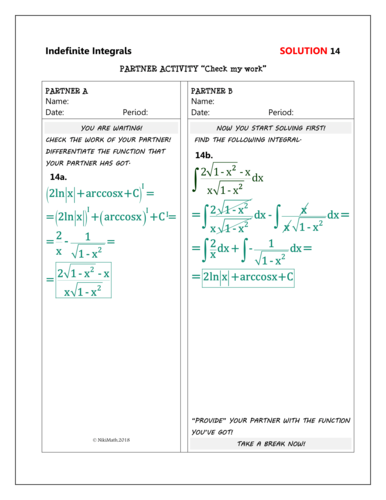 Indefinite Integrals SOLUTION 14
PARTNER ACTIVITY “Check my work”
PARTNER A
Name:
Date: Period:
YOU ARE WAITING!
CHECK THE WORK OF YOUR PARTNER!
DIFFERENTIATE THE FUNCTION THAT
YOUR PARTNER HAS GOT.
14a.
(2ln|x|+arccosx+C)^I =
=(2ln|x|)^I+(arccosx)^I+C^I=
=2/x - 1/√(1-x²) =
=(2√(1-x²) - x)/(x√(1-x²))
© NikiMath,2018
PARTNER B
Name:
Date: Period:
NOW YOU START SOLVING FIRST!
FIND THE FOLLOWING INTEGRAL.
14b.
∫(2√(1-x²) - x)/(x√(1-x²))dx
=∫(2√(1-x²))/(x√(1-x²))dx - ∫x/(x√(1-x²))dx=
=∫2/x dx+∫-1/√(1-x²)dx=
=2ln|x|+arccosx+C
“PROVIDE” YOUR PARTNER WITH THE FUNCTION
YOU’VE GOT!
TAKE A BREAK NOW!